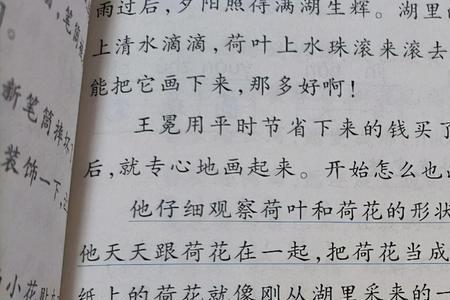 雨过后，夕阳照得满湖生辉。湖里的
上清水滴滴，荷叶上水珠滚来滚去
能把它画下来，那多好啊！
王冕用平时节省下来的钱买了
后，就专心地画起来。开始怎么也
他仔细观察荷叶和荷花的形状
他天天跟荷花在一起，把荷花当成
纸上的荷花就像刚从湖里采来的一
新笔筒摔坏
装饰一下，
小花贴